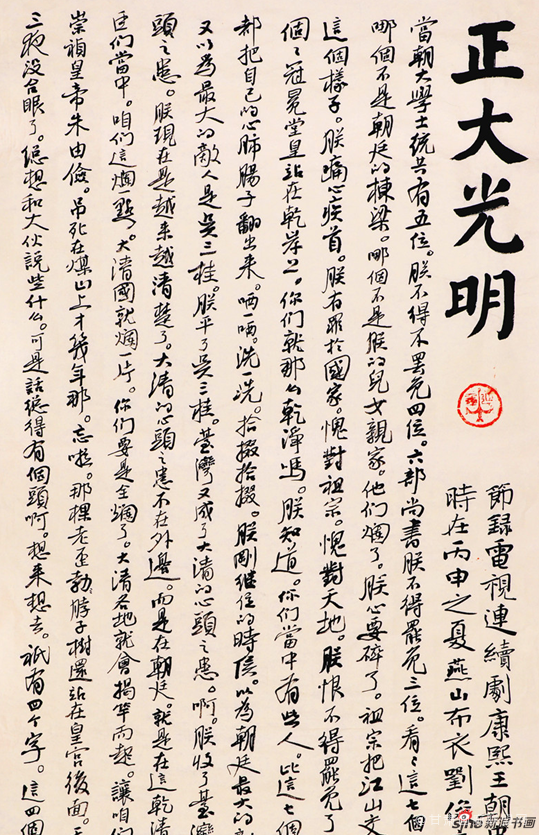 正大光明
節錄電視連續劇康熙王朝
時在丙申之夏燕山布衣劉俊
當朝大學士統共有五位。朕不得不罢免四位。六部尚書朕不得罷免三位。看々這七個
哪個不是朝廷的棟梁。哪個不是朕的兒女親家。他們爛了。朕心要碎了。祖宗把江山交
這個樣子。朕痛心疾首。朕有罪於國家。愧對祖宗。愧對天地。朕恨不得罷免了
個々冠冕堂皇站在乾岸上。你們就那么乾淨嗎。朕知道。你們當中有些人。比這七個
都把自己的心肺腸子翻出來。晒一晒。洗洗。拾掇拾掇。朕剛继位的時候。以為朝廷最大的
又以為最大的敵人是吳三桂。朕平了吳三桂。臺灣又成了大清的心頭之患。啊。朕收了臺灣
頭之患。朕現在是越来越清楚了。大清的心頭之患不在外邊。而是在朝廷。就是在這乾清
臣們當中。咱們這爛一點。大清國就爛一片。你們要是全爛了。大清各地就會揭竿而起。讓咱們
崇禎皇帝朱由儉。吊死在煤山上才幾年那。忘啦。那棵老歪勃脖子樹還站在皇宮後面。
三夜没合眼了。總想和大伙說些什么。可是話總得有個頭啊。想来想去。祇有四个字。這四個
sina新浪书画